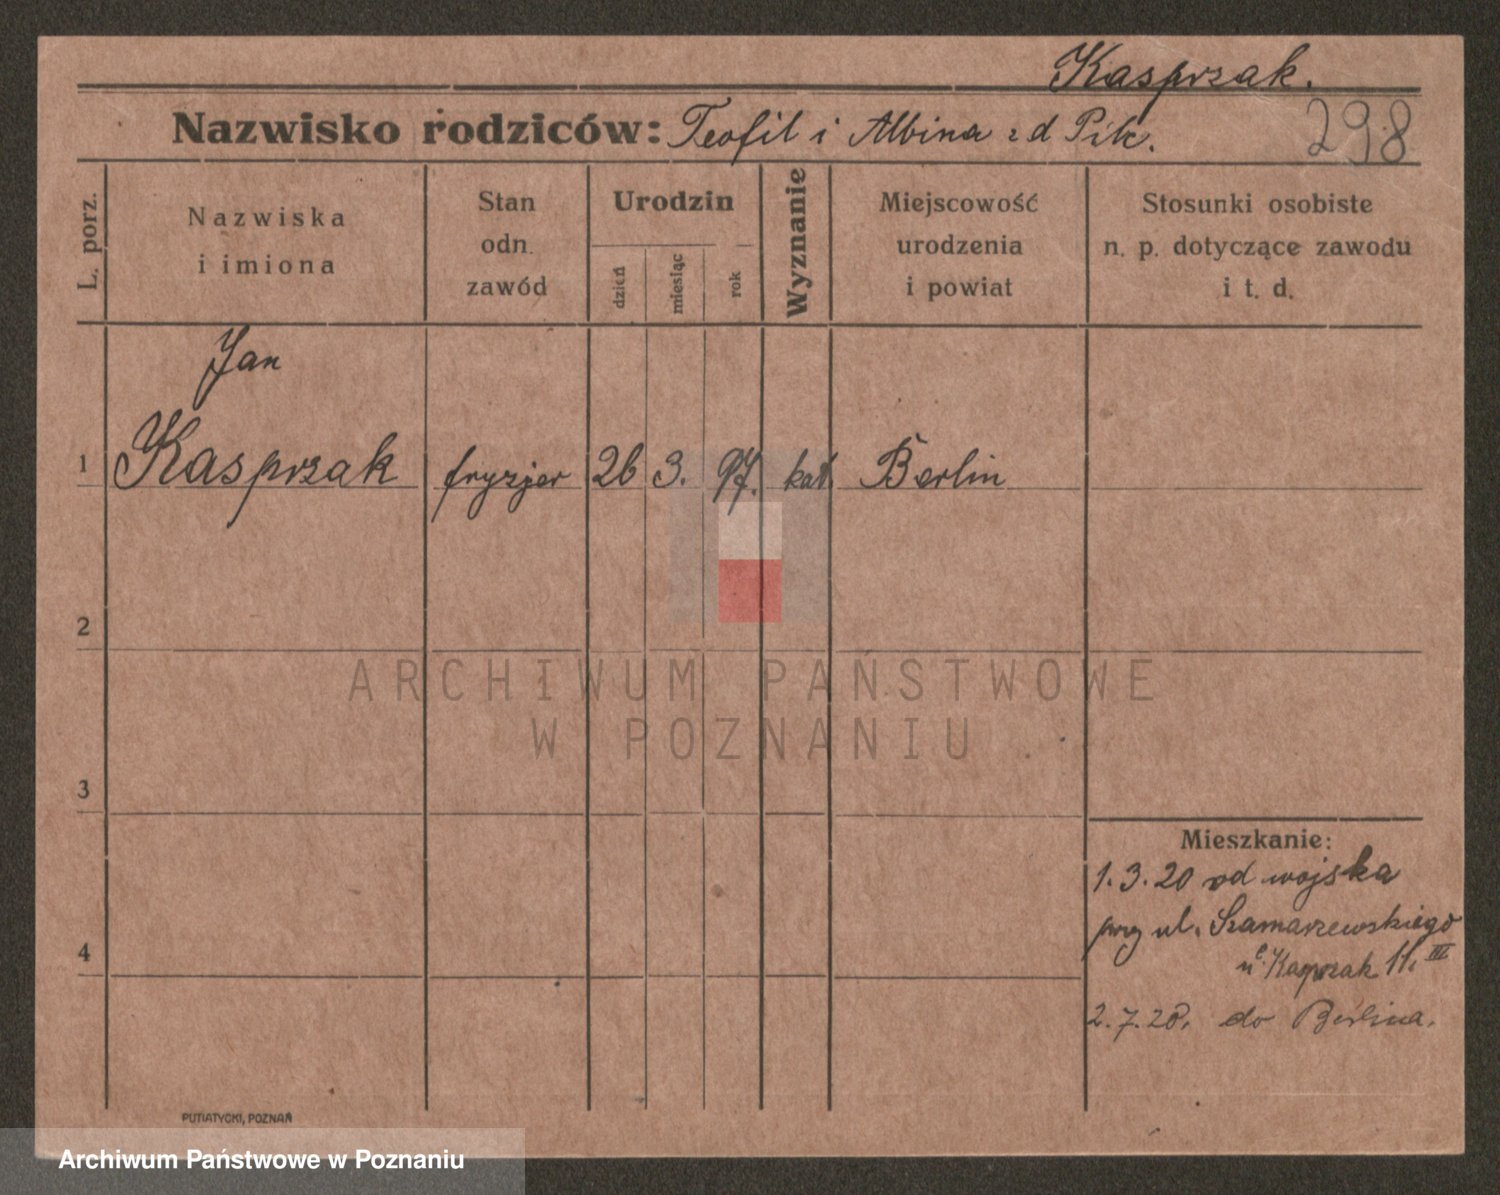 Kasprzak.
Nazwisko rodziców: Teofil i Albina z d Pik.
298
L. porz.
Nazwiska
i imiona
Stan
odn.
zawód
Urodzin
dzień
miesiąc
rok
Wyznanie
Miejscowość
urodzenia
i powiat
Stosunki osobiste
n. p. dotyczące zawodu
i t. d.
Jan
1 Kasprzak fryzjer 26 3. 97. kat. Berlin
2
ARCHIWUM PAŃSTWOWE
W POZNANIU
3
Mieszkanie:
1.3.20 od wojska
przy ul. Szamarzewskiego
u Kasprzak 11. III
4
2.7.20. do Berlina.
PUTIATYCKI, POZNAŃ
Archiwum Państwowe w Poznaniu